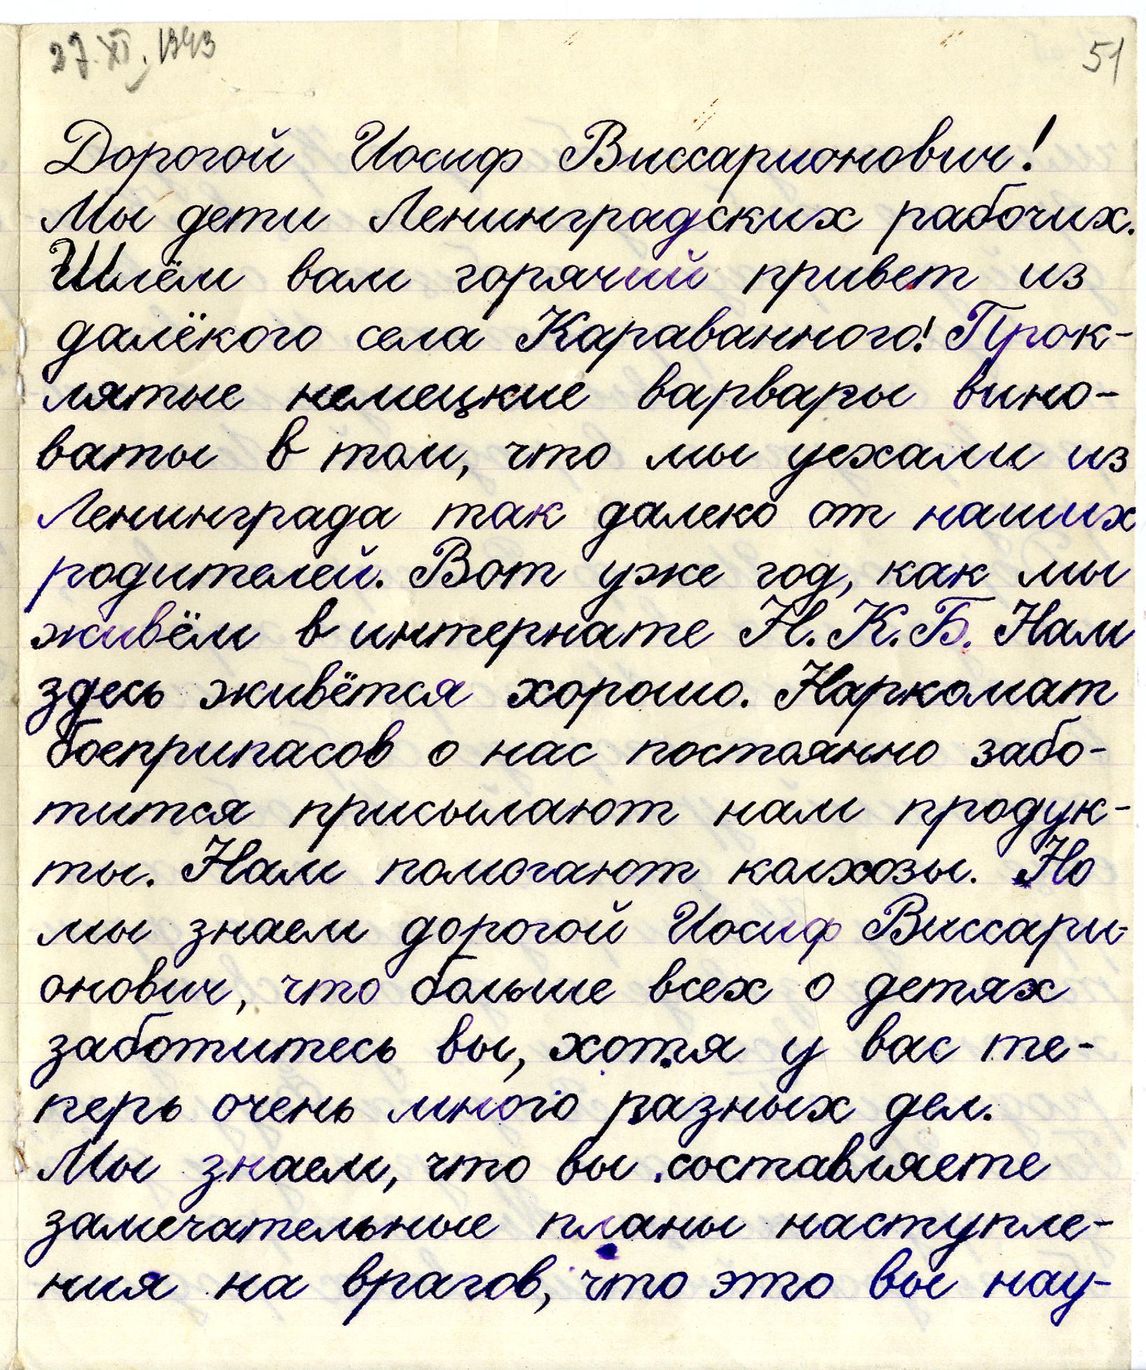 27.XI.1943
51
Дорогой Иосиф Виссарионович!
Мы дети Ленинградских рабочих.
Шлём вам горячий привет из
далёкого села Караванного! Прок-
лятые немецкие варвары вино-
ваты в том, что мы уехали из
Ленинграда так далеко от наших
родителей. Вот уже год, как мы
живём в интернате Н.К.Б. Нам
здесь живётся хорошо. Наркомат
боеприпасов о нас постоянно забо-
тится присылают нам продук-
ты. Нам помогают колхозы. Но
мы знаем дорогой Иосиф Виссари-
онович, что больше всех о детях
заботитесь вы, хотя у вас те-
перь очень много разных дел.
Мы знаем, что вы составляете
замечательные планы наступле-
ния на врагов, что это вы нау-